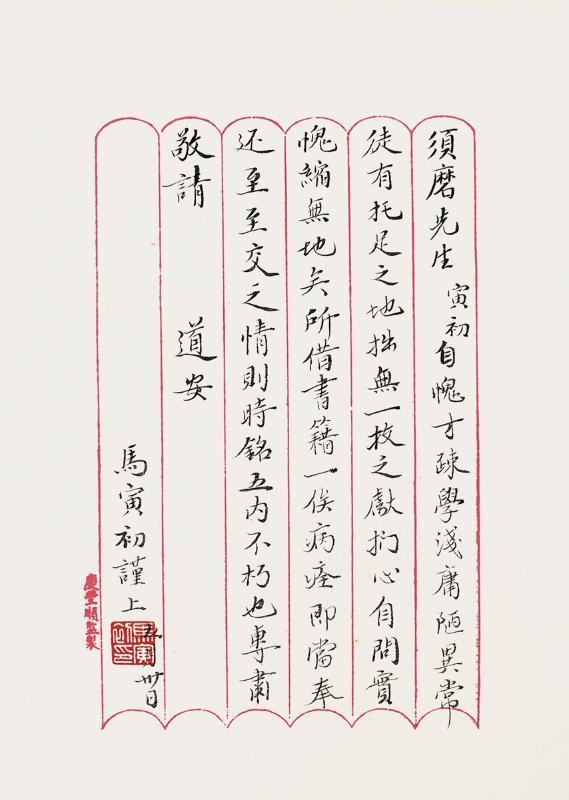 須磨先生 寅初自愧才疎學淺庸陋異常
徒有托足之地拙無一枚之獻捫心自問實
愧縮無地矣所借書籍一俟病痊即當奉
还至至交之情則時銘五內不朽也專肅
敬請
道安
馬寅初謹上
五月卅日
馬寅初印
慶豐順監製